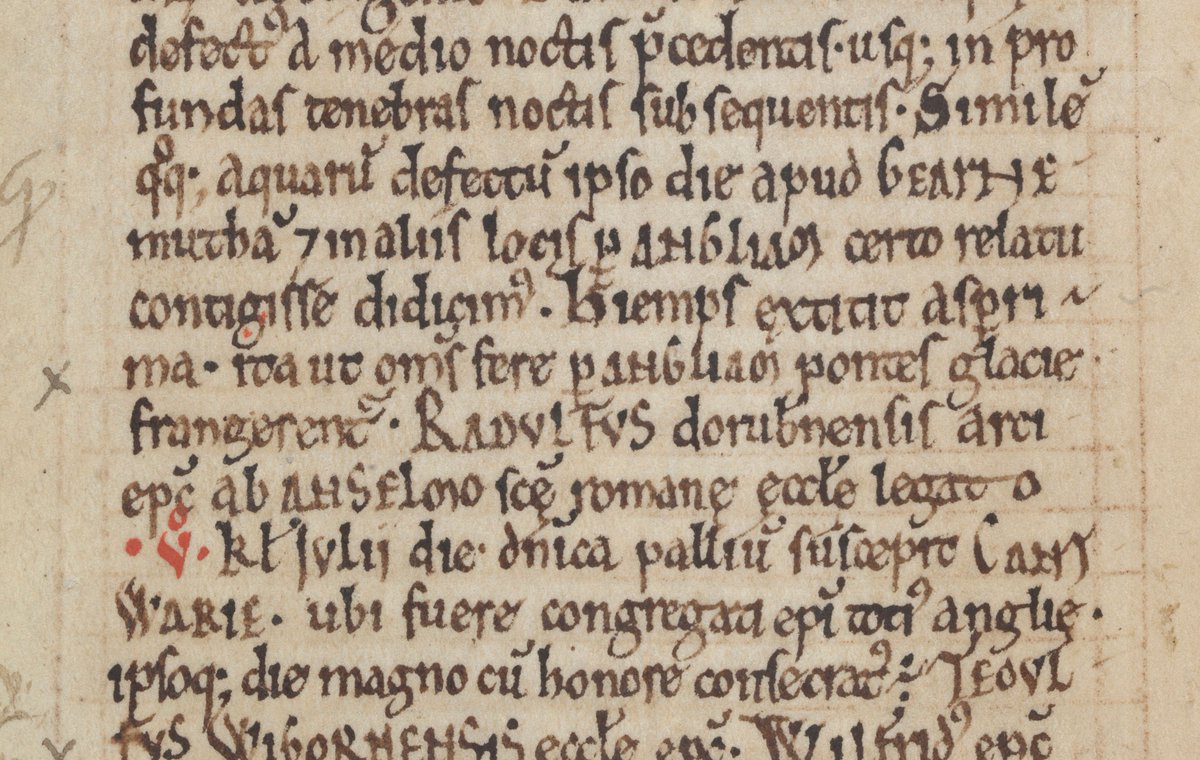 defectꝰ a medio noctis p̄cedentis· usq; in pro
fundas tenebras noctis subsequentis· Similē
qͦq; aquarū defectū ipso die apud GEARNE
muthā ⁊ in aliis locis ꝑ ANGLIAM certo relatu
contigisse didicimꝰ· Hiemps extitit asꝑri
ma· ita ut om̄s fere ꝑ ANGLIAM pontes glacie
frangerent᷑· RADULFUS dorubnensis arci
ep̄c ab ANSELMO scę̄ romanę ęccłe legato
·v̊· kł JULII die dn̄ica palliū suscepit CANT
WARIE· ubi fuere congregati ep̄i totiꝰ anglie·
ipsoq; die magno cū honore consecrat᷑ TEOUL
FUS WIGORNENSIS eccłe ep̄c· Wilfridꝰ ep̄c